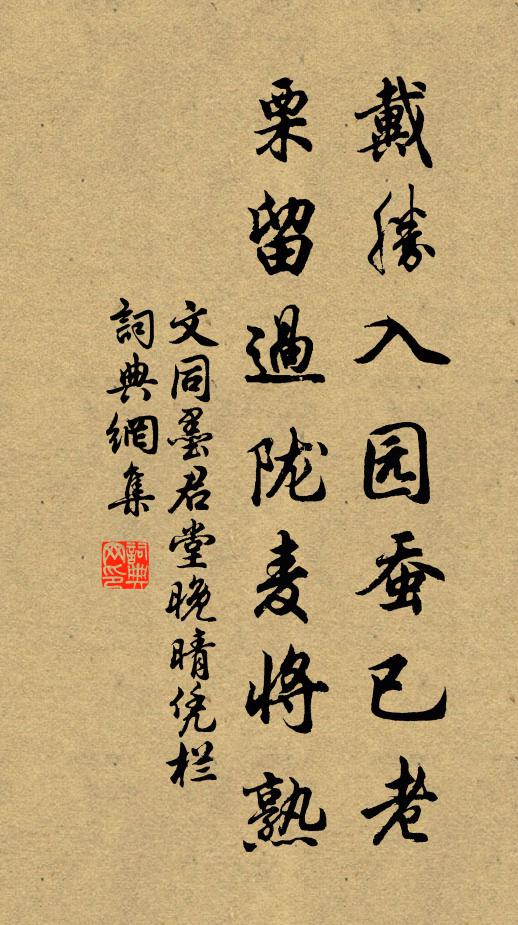 戴勝入园蚕已老
栗留過陇麦将熟
文同墨君堂晚晴凭栏
詞典網集
詞典
网印